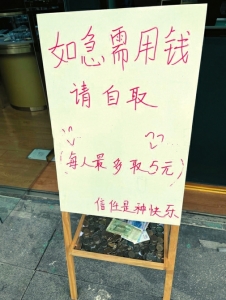 如急需用钱
请自取
(每人最多取5元)
信任是种快乐